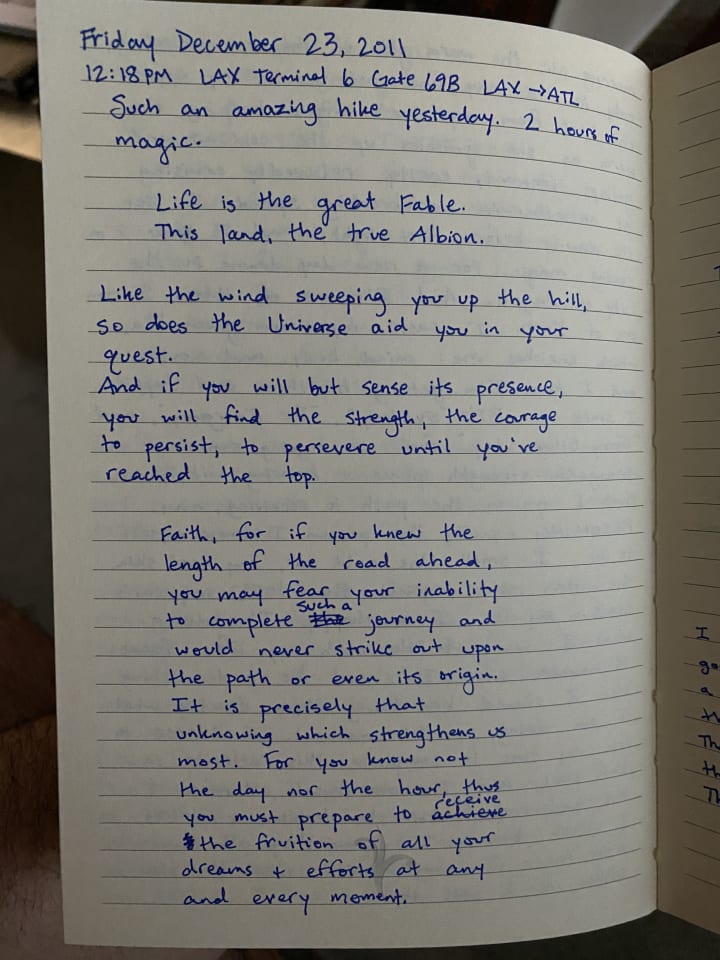 Friday December 23, 2011
12:18PM LAX Terminal 6 Gate 69B LAX →ATL
Such an amazing hike yesterday. 2 hours of
magic.
Life is the great Fable.
This land, the true Albion.
Like the wind sweeping you up the hill,
so does the Universe aid you in your
quest.
And if you will but sense its presence,
you will find the strength, the courage
to persist, to persevere until you've
reached the top.
Faith, for if you knew the
length of the road ahead,
you may fear your inability
such a
to complete the journey and
would never strike out upon
the path or even its origin.
It is precisely that
unknowing which strengthens us
most. For you know not
the day nor the hour, thus
receive
you must prepare to achieve
the fruition of all your
dreams + efforts at any
and every moment.
I
go
a
Th
th